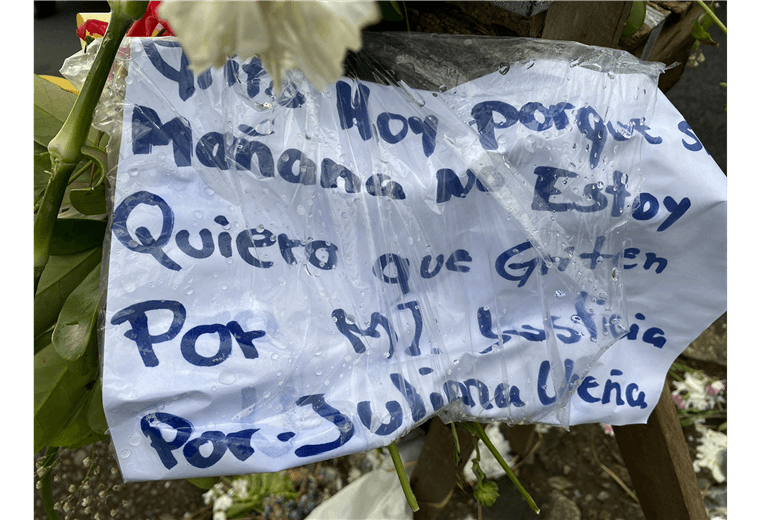 Hoy porque s
Mañana no Estoy
Quiero que Griten
Por MI Justicia
Por-Julima Ureña